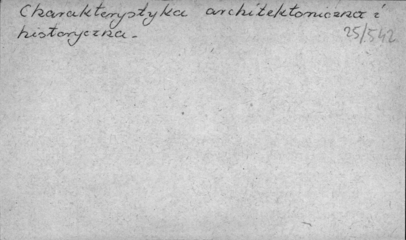 Charakterystyka architektoniczna i
historyczna.
25/542